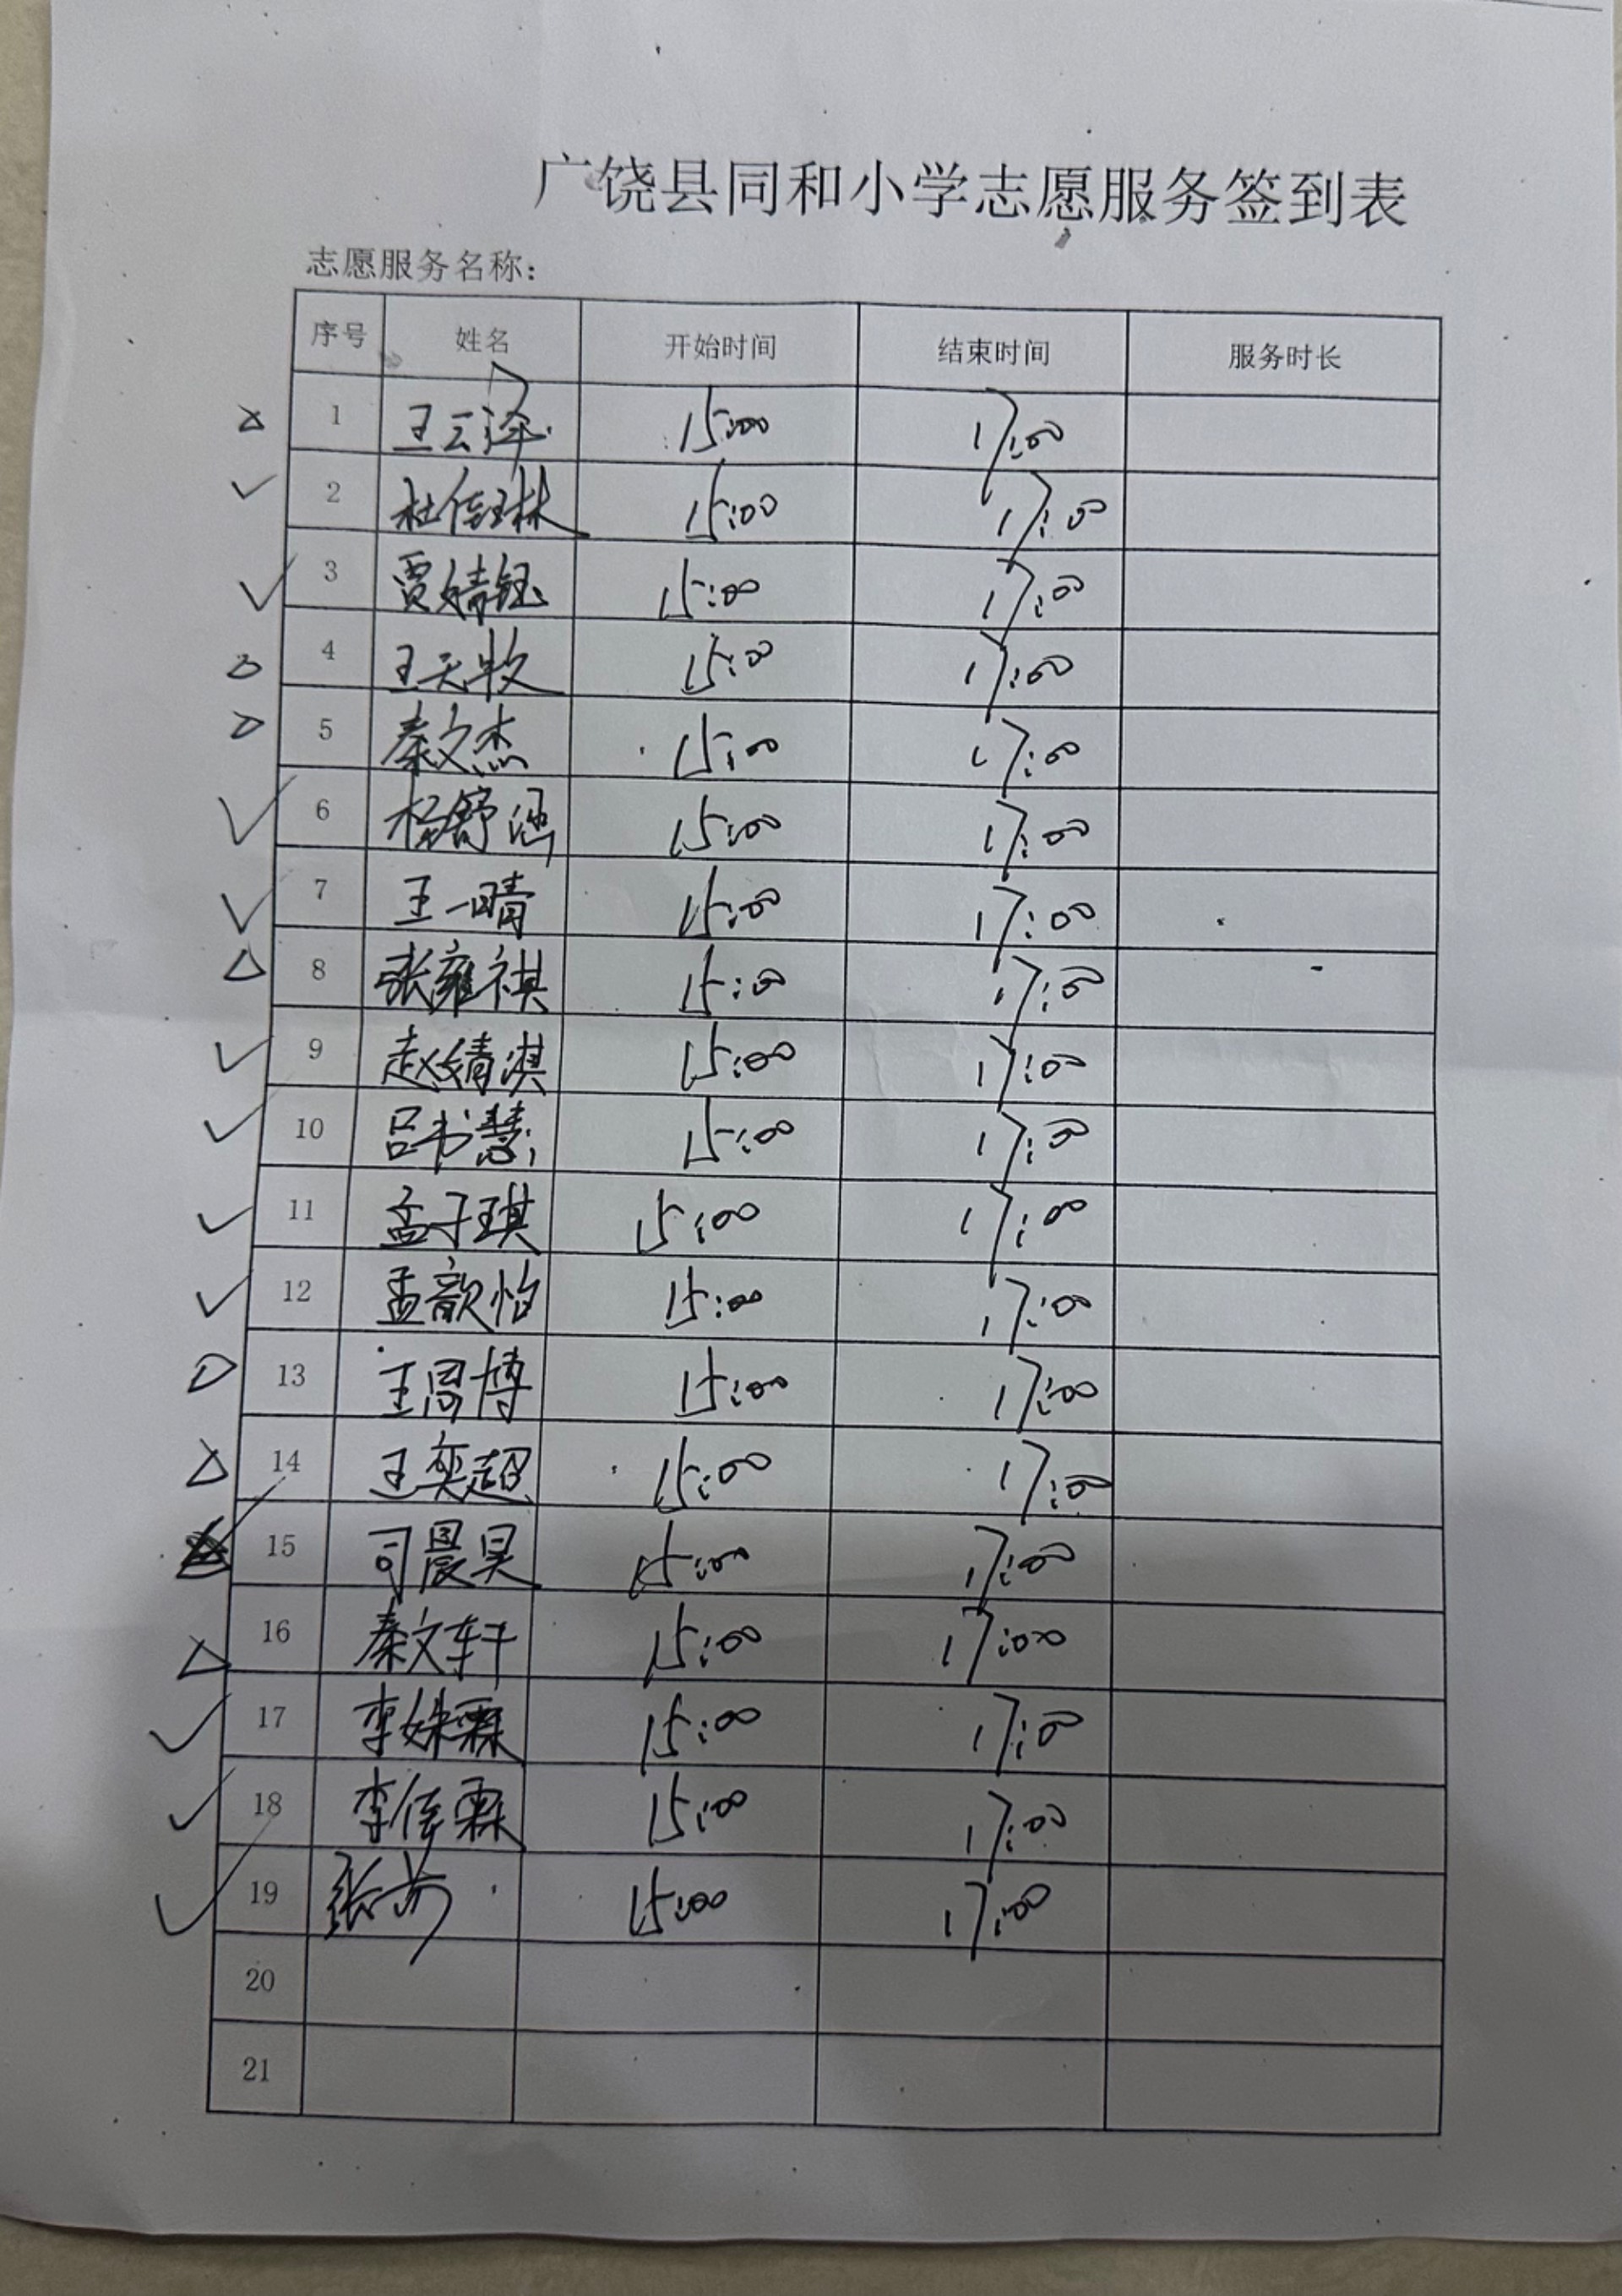 广饶县同和小学志愿服务签到表
志愿服务名称：
序号 姓名 开始时间 结束时间 服务时长
1 王云泽 15:00 17:00
2 杜佳琳 15:00 17:00
3 贾婧钰 15:00 17:00
4 王天牧 15:00 17:00
5 秦文杰 15:00 17:00
6 杨舒涵 15:00 17:00
7 王一晴 15:00 17:00
8 张雍祺 15:00 17:00
9 赵婧淇 15:00 17:00
10 吕书慧 15:00 17:00
11 孟子琪 15:00 17:00
12 孟歆怡 15:00 17:00
13 王周博 15:00 17:00
14 王奕超 15:00 17:00
15 司晨昊 15:00 17:00
16 秦文轩 15:00 17:00
17 李姝霖 15:00 17:00
18 李佳霖 15:00 17:00
19 张 15:00 17:00
20
21